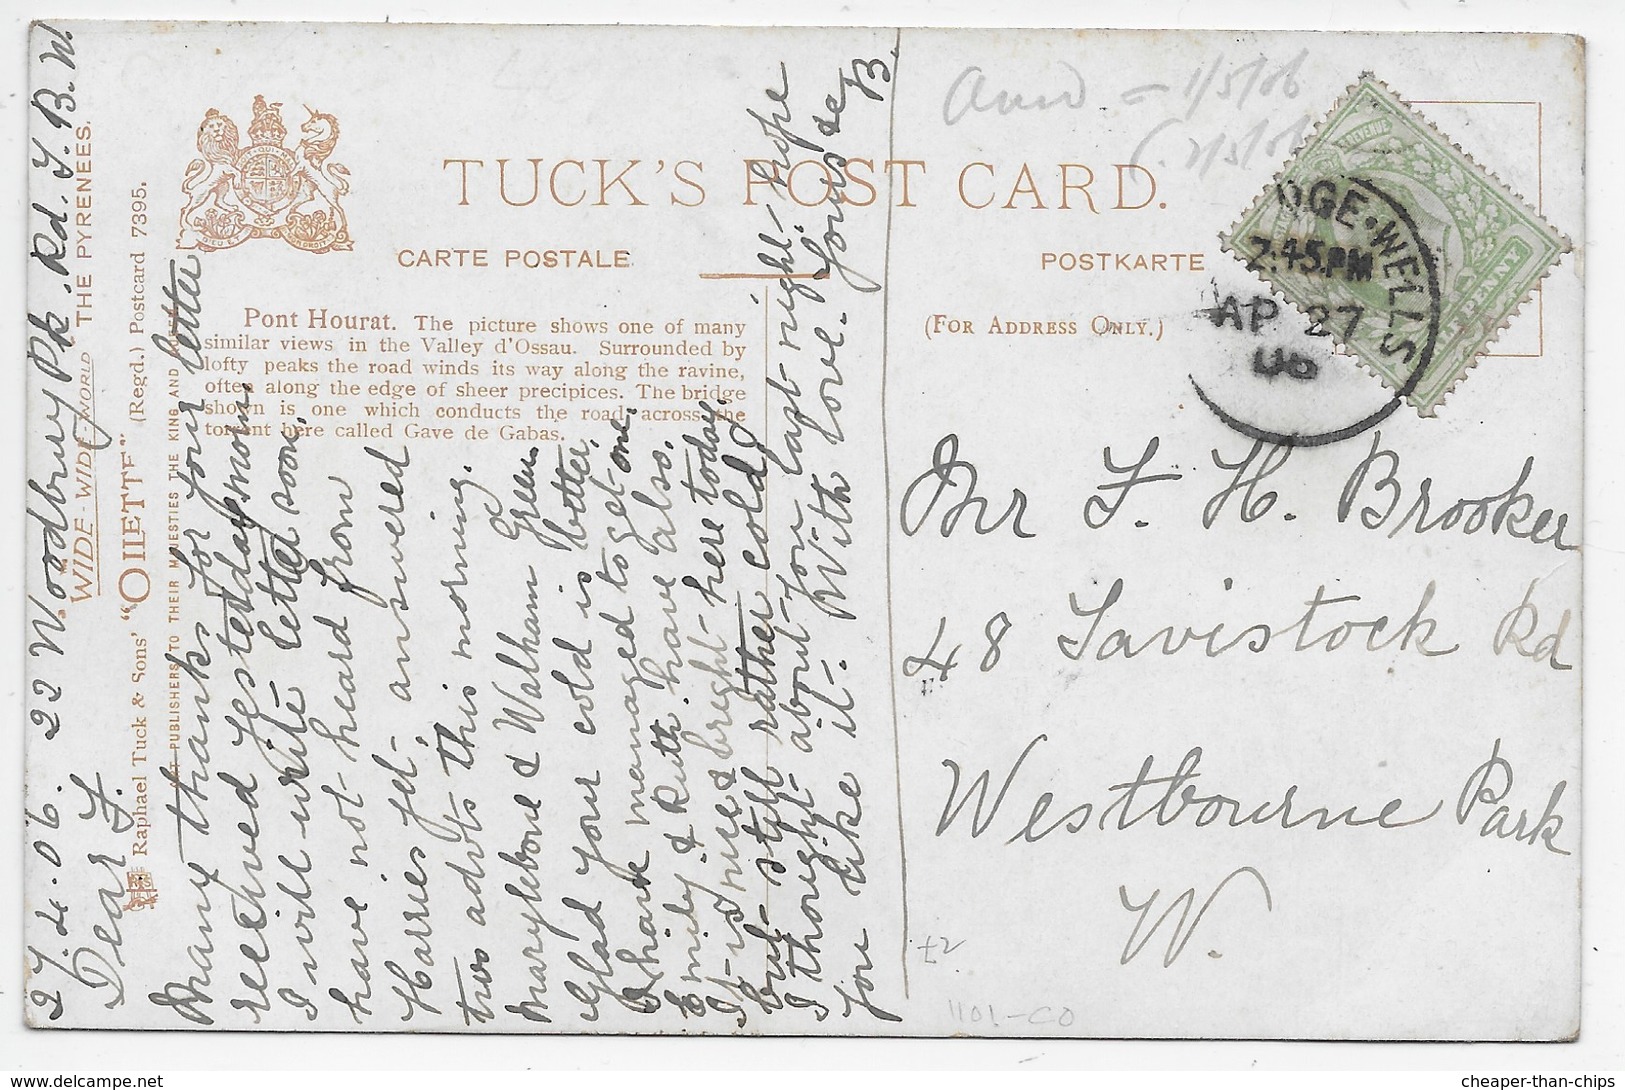 27.4.06. 22 Woodbury Pk. Rd. T. B. W.
Dear F.
Many thanks for your letter
received yesterday morn.
I will write letter soon,
have not heard from
Harries yet, answered
two advts this morning.
Marylebone & Walham Green
Glad your cold is better,
thank managed to get one.
& Ruth have also.
It is nice & bright here today,
but still rather cold,
I thought about you last night - hope
you like it. With love. Yours
B.
WIDE-WIDE-WORLD THE PYRENEES.
Raphael Tuck & Sons' "OILETTE" (Regd.) Postcard 7395.
ART PUBLISHERS TO THEIR MAJESTIES THE KING AND QUEEN
TUCK'S POST CARD.
CARTE POSTALE
POSTKARTE
(FOR ADDRESS ONLY.)
Pont Hourat. The picture shows one of many
similar views in the Valley d'Ossau. Surrounded by
lofty peaks the road winds its way along the ravine,
often along the edge of sheer precipices. The bridge
shown is one which conducts the road across the
torrent here called Gave de Gabas.
1/5/06
2/5/06
DGE·WELLS
2.45PM
AP 27
06
REVENUE
PENNY
Mr F. H. Brooker
48 Tavistock Rd
Westbourne Park
W.
£2
1101-CO
delcampe.net
cheaper-than-chips